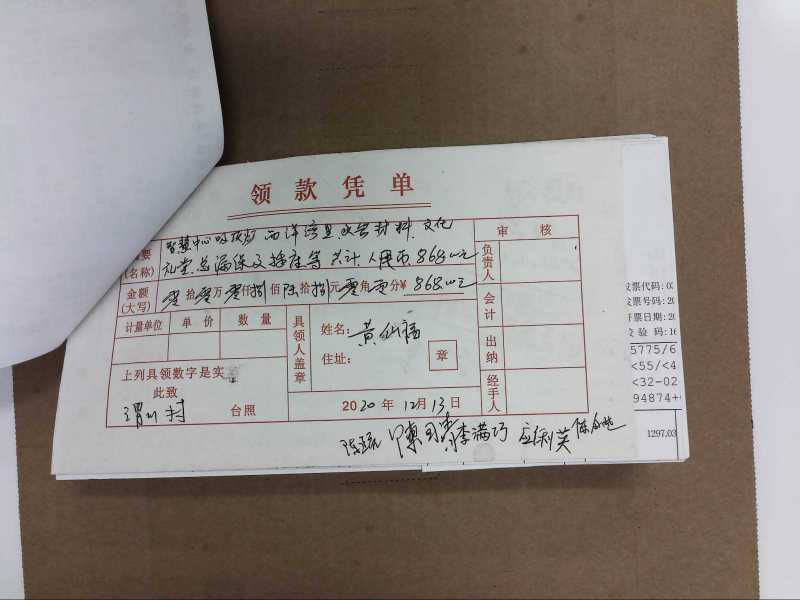 领款凭单
审核
摘要
(名称)
智慧中心吸顶灯 西洋湾 材料 文化
礼堂总漏保及插座等共计人民币868.00元
金额
(大写)
零拾零万零仟捌佰陆拾捌元零角零分¥868.00元
计量单位 单价 数量
具领人盖章
姓名:黄仙福
住址:
章
上列具领数字是实
此致
村
台照
2020年12月13日
负责人
会计
出纳
经手人
李满巧
发票代码:0
发票号码:20
开票日期:20
校验码:16
5775/6
<55/<4
<32-02
94874+
1297.03